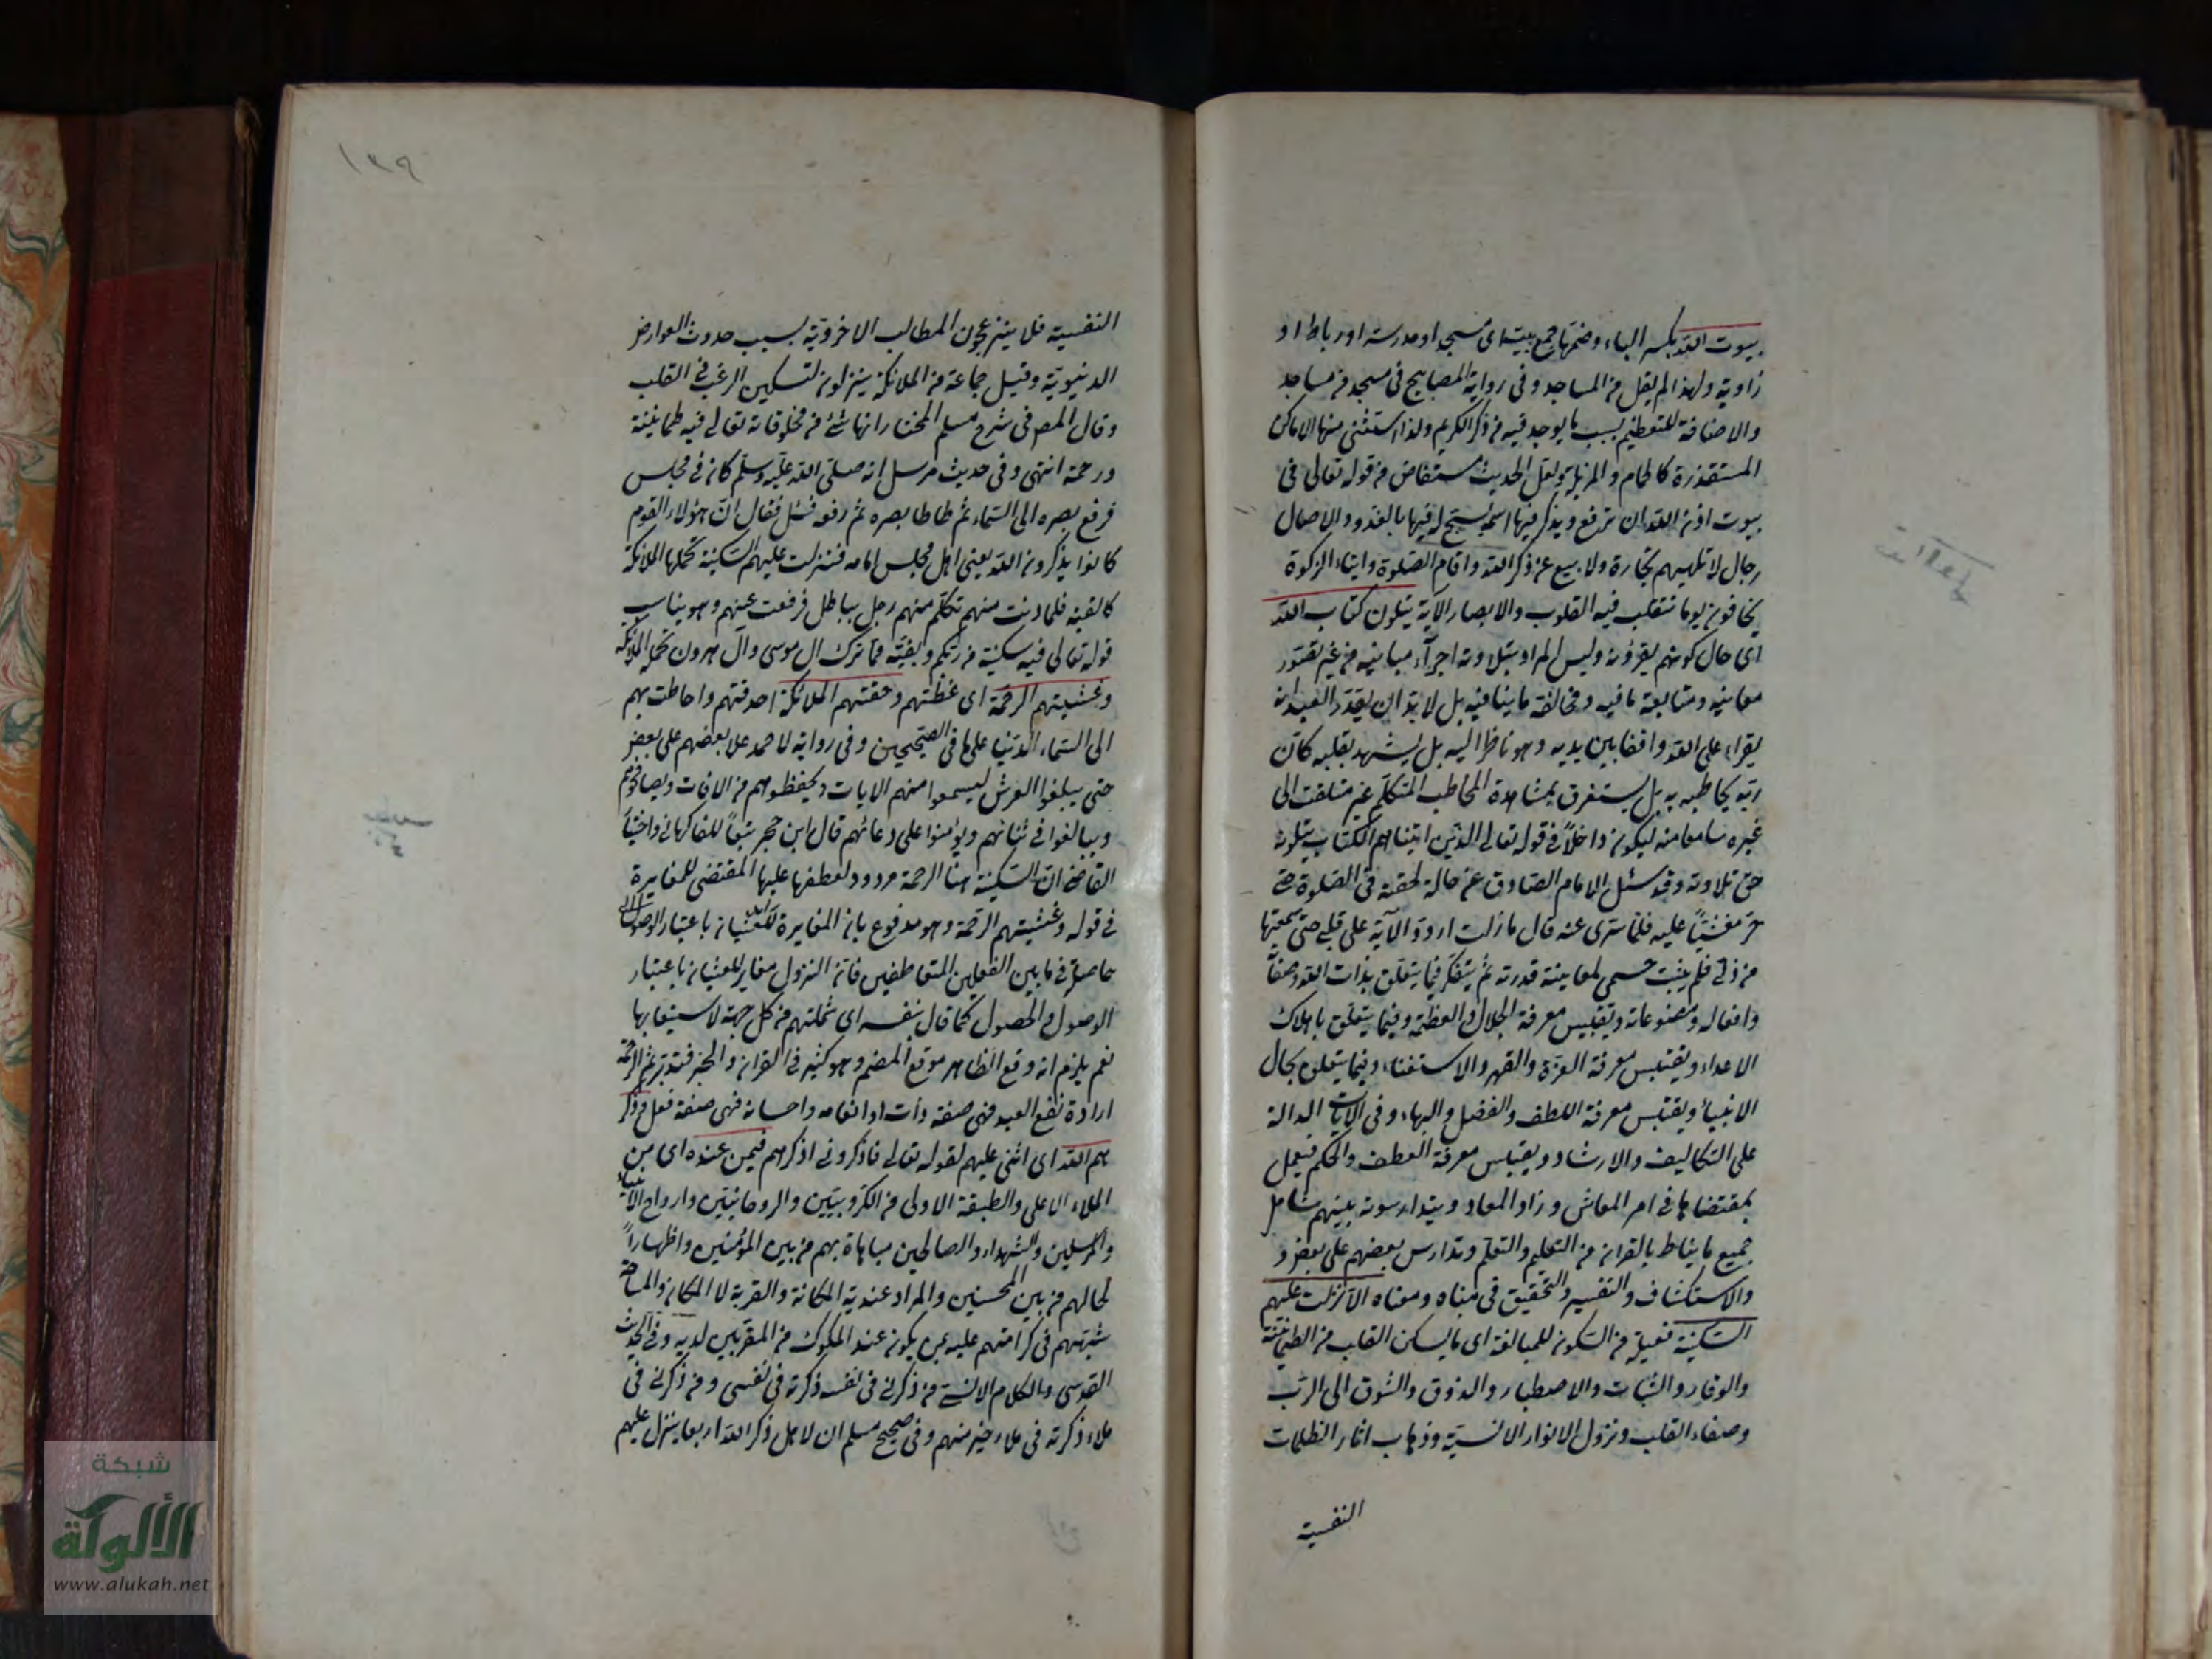 بيوت الله بكسر الباء وضمها جمع بيت اى مسجد او مدرسة او رباط او
زاوية ولهذا لم يقل من المساجد وفى رواية المصابيح فى مسجد من مساجد
والاضافة للتعظيم بسبب ما يوجد فيه من ذكر الكريم ولذا استثنى منها الاماكن
المستقذرة كالحمام والمزبلة ولعل الحديث مستفاض من قوله تعالى فى
بيوت اذن الله ان ترفع ويذكر فيها اسمه يسبح له فيها بالغدو والاصال
رجال لا تلهيهم تجارة ولا بيع عن ذكر الله واقام الصلوة وايتاء الزكوة
يخافون يوما تتقلب فيه القلوب والابصار الآية يتلون كتاب الله
اى حال كونهم يقرؤنه وليس المراد بتلاوته اجراء مبانيه من غير تصور
معانيه ومتابعة ما فيه ومخالفة ما ينافيه بل لا بد ان يقدر العبد انه
يقراء على الله واقفا بين يديه وهو ناظر اليه بل يشهد بقلبه كان
ربه يخاطبه به بل يستغرق بمشاهدة المخاطب المتكلم غير متلفت الى
غيره سامعا منه ليكون داخلاً فى قوله تعالى الذين اتيناهم الكتاب يتلونه
حق تلاوته وقد سئل الامام الصادق عن حالة لحقته فى الصلوة حتى
خر مغشيًا عليه فلما سرى عنه قال ما زلت اردد الآية على قلبى حتى سمعتها
من فلم يثبت جسمى لمعاينة قدرته ثم يتفكر فيما يتعلق بذات الله وصفاته
وافعاله ومصنوعاته ويقتبس معرفة الجلال والعظمة وفيما يتعلق باهلاك
الاعداء ويقتبس معرفة العزة والقهر والاستغناء وفيما يتعلق بحال
الانبياء ويقتبس معرفة اللطف والفضل والبهاء وفى الآيات الدالة
على التكاليف والارشاد ويقتبس معرفة اللطف والحكم فيعمل
بمقتضاها فى امر المعاش وزاد المعاد ويتدارسونه بينهم شامل
جميع ما يناط بالقران من التعليم والتعلم وتدارس بعضهم على بعض و
والاستكشاف والتفسير والتحقيق فى مبناه ومعناه الا نزلت عليهم
السكينة فعيلة من السكون للمبالغة اى ما يسكن القلب من الطمانينة
والوقار والثبات والاصطبار والذوق والشوق الى الرب
وصفاء القلب ونزول الانوار الانسية وذهاب اثار الظلمات
النفسية
١٣٩
النفسية فلا ينزعجون المطالب الاخروية بسبب حدوث العوارض
الدنيوية وقيل جماعة من الملائكة ينزلون لتسكين الرغب فى القلب
وقال المص فى شرح مسلم المختار انها شئ من مخلوقاته تعالى فيه طمانينة
ورحمة انتهى وفى حديث مرسل انه صلى الله عليه وسلم كان فى مجلس
فرفع بصره الى السماء ثم طاطا بصره ثم رفعه فسئل فقال ان هؤلاء القوم
كانوا يذكرون الله يعنى اهل مجلس امامه فنزلت عليهم السكينة تحملها الملائكة
كالقبة فلما دنت منهم تكلم منهم رجل بباطل فرفعت عنهم وهو يناسب
قوله تعالى فيه سكينة من ربكم وبقية مما ترك ال موسى وآل هرون تحمله الملائكة
وغشيتهم الرحمة اى غطتهم وحفتهم الملائكة احدقتهم واحاطت بهم
الى السماء الدنيا على ما فى الصحيحين وفى رواية لاحمد علا بعضهم على بعض
حتى يبلغوا العرش ليسمعوا منهم الايات ويحفظوهم من الافات ويصافحوهم
ويبالغوا فى ثنائهم ويؤمنوا على دعائهم قال ابن حجر تبعًا للفاكهانى واختيار
القاضى ان السكينة هنا الرحمة مردود لعطفها عليها المقتضى للمغايرة
فى قوله وغشيتهم الرحمة وهو مدفوع بان المغايرة باعتبار الوصول
حاصلة فى ما بين الفعلين المتعاطفين فان النزول مغاير للغشيان باعتبار
الوصول والحصول كما قال بنفسه اى شملتهم من كل جهة لاستيعابها
نعم يلزم انه وقع الظاهر موقع المضمر وهو كثير فى القران والخبر فتدبر ثم الرحمة
ارادة نفع العبد فهى صفة ذات او انعامه واحسانه فهى صفة فعل وذكر
هم الله اى اثنى عليهم لقوله تعالى فاذكرونى اذكركم فيمن عنده اى من
الملاء الاعلى والطبقة الاولى من الكروبيين والروحانيين وارواح الانبياء
والمرسلين والشهداء والصالحين مباهاة بهم من بين المؤمنين واظهارًا
لحالهم من بين المحسنين والمراد عندية المكانة والقربة لا المكان والمساحة
شبههم فى كرامتهم عليه بمن يكون عند الملوك من المقربين لديه وفى الحديث
القدسى والكلام الانسى من ذكرنى فى نفسه ذكرته فى نفسى ومن ذكرنى فى
ملاء ذكرته فى ملاء خير منهم وفى صحيح مسلم ان لاهل ذكر الله اربعا ينزل عليهم
شبكة
الألوكة
www.alukah.net